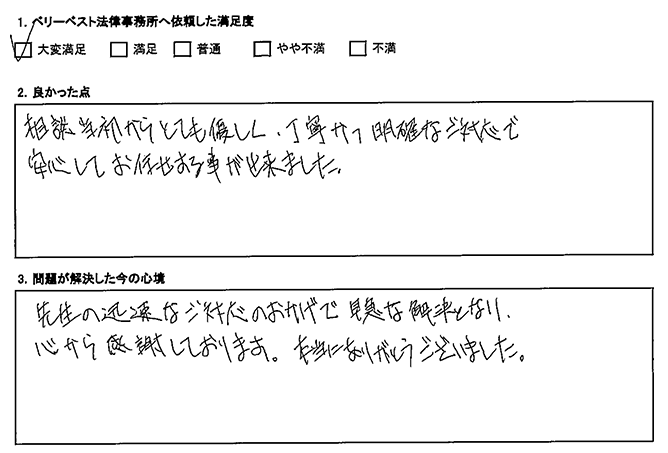 1. ベリーベスト法律事務所へ依頼した満足度
大変満足 満足 普通 やや不満 不満
2. 良かった点
相談当初からとても優しく、丁寧かつ明確なご対応で
安心してお任せする事が出来ました。
3. 問題が解決した今の心境
先生の迅速なご対応のおかげで早急な解決となり、
心から感謝しております。本当にありがとうございました。